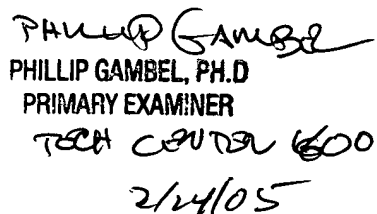 PHILLIP GAMBEL
PHILLIP GAMBEL, PH.D
PRIMARY EXAMINER
TECH CENTER 1600
2/24/05